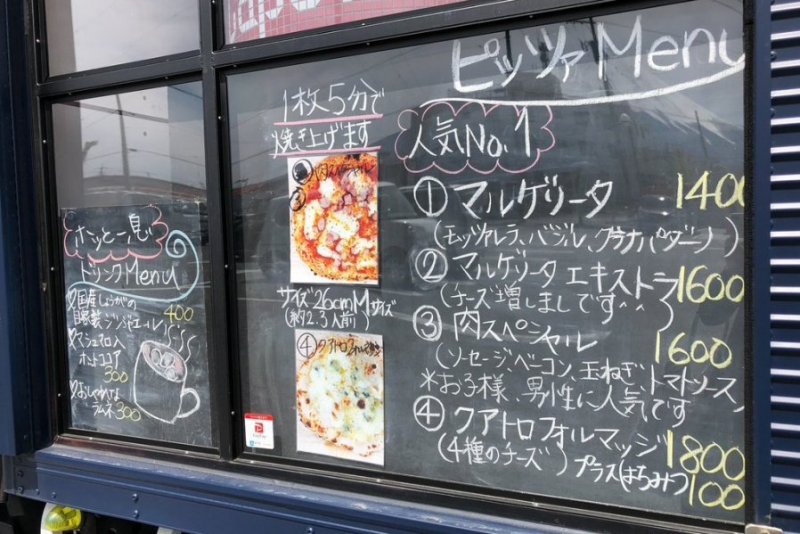 ピッツァMenu
1枚5分で
焼き上げます
人気No.1
① マルゲリータ 1400
(モッツァレラ、バジル、グラナパダーノ)
② マルゲリータエキストラ 1600
(チーズ増しましです^^)
③ 肉スペシャル 1600
(ソーセージ、ベーコン、玉ねぎ、トマトソース)
*お子様、男性に人気です
④ クアトロフォルマッジ 1800
(4種のチーズ) プラスはちみつ100
③
サイズ26cmMサイズ
(約2.3人前)
④
ホッと一息
ドリンクMenu
国産しょうがの
自家製ジンジャエール 400
マシュマロ入
ホットココア
300
おしゃれな
ラムネ 300
PayPay